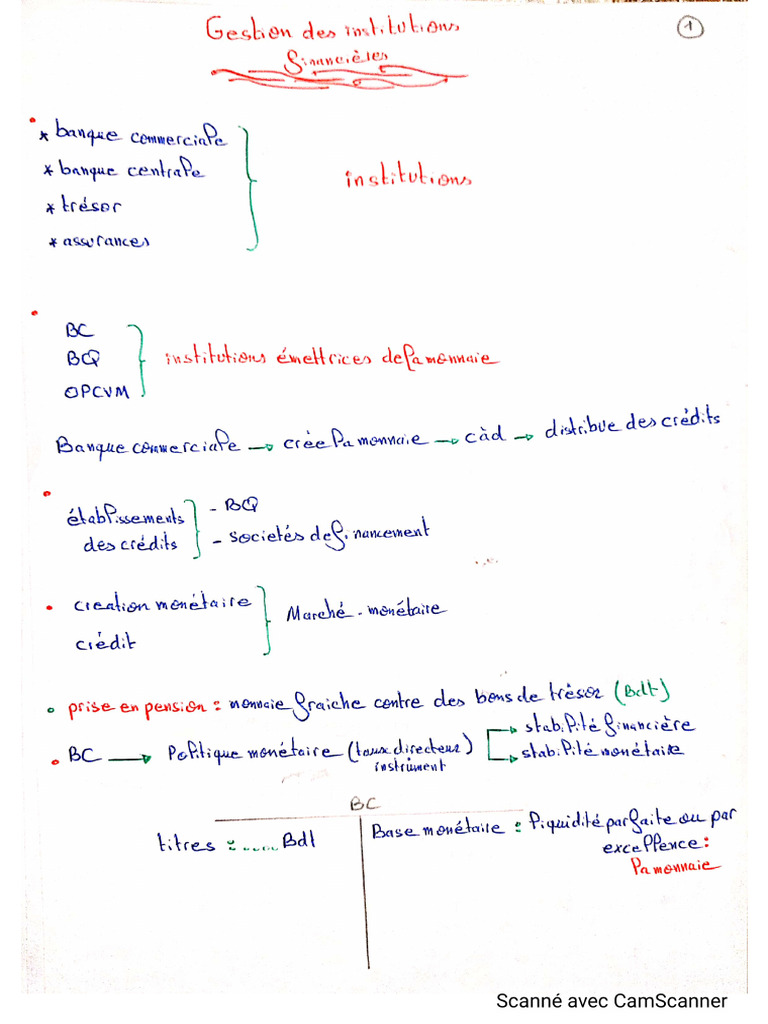 Gestion des institutions
financières
1
* banque commerciale
* banque centrale
* trésor
* assurances
institutions
BC
BQ
OPCVM
institutions émettrices de la monnaie
Banque commerciale → crée la monnaie → càd → distribue des crédits
établissements
des crédits
- BQ
- societés de financement
creation monétaire
crédit
Marché monétaire
prise en pension : monnaie fraiche contre des bons de trésor (Bdt)
BC → Politique monétaire (taux directeur)
instrument
stabilité financière
stabilité monétaire
BC
titres : ..... Bdt
Base monétaire : liquidité parfaite ou par
excellence :
la monnaie
Scanné avec CamScanner